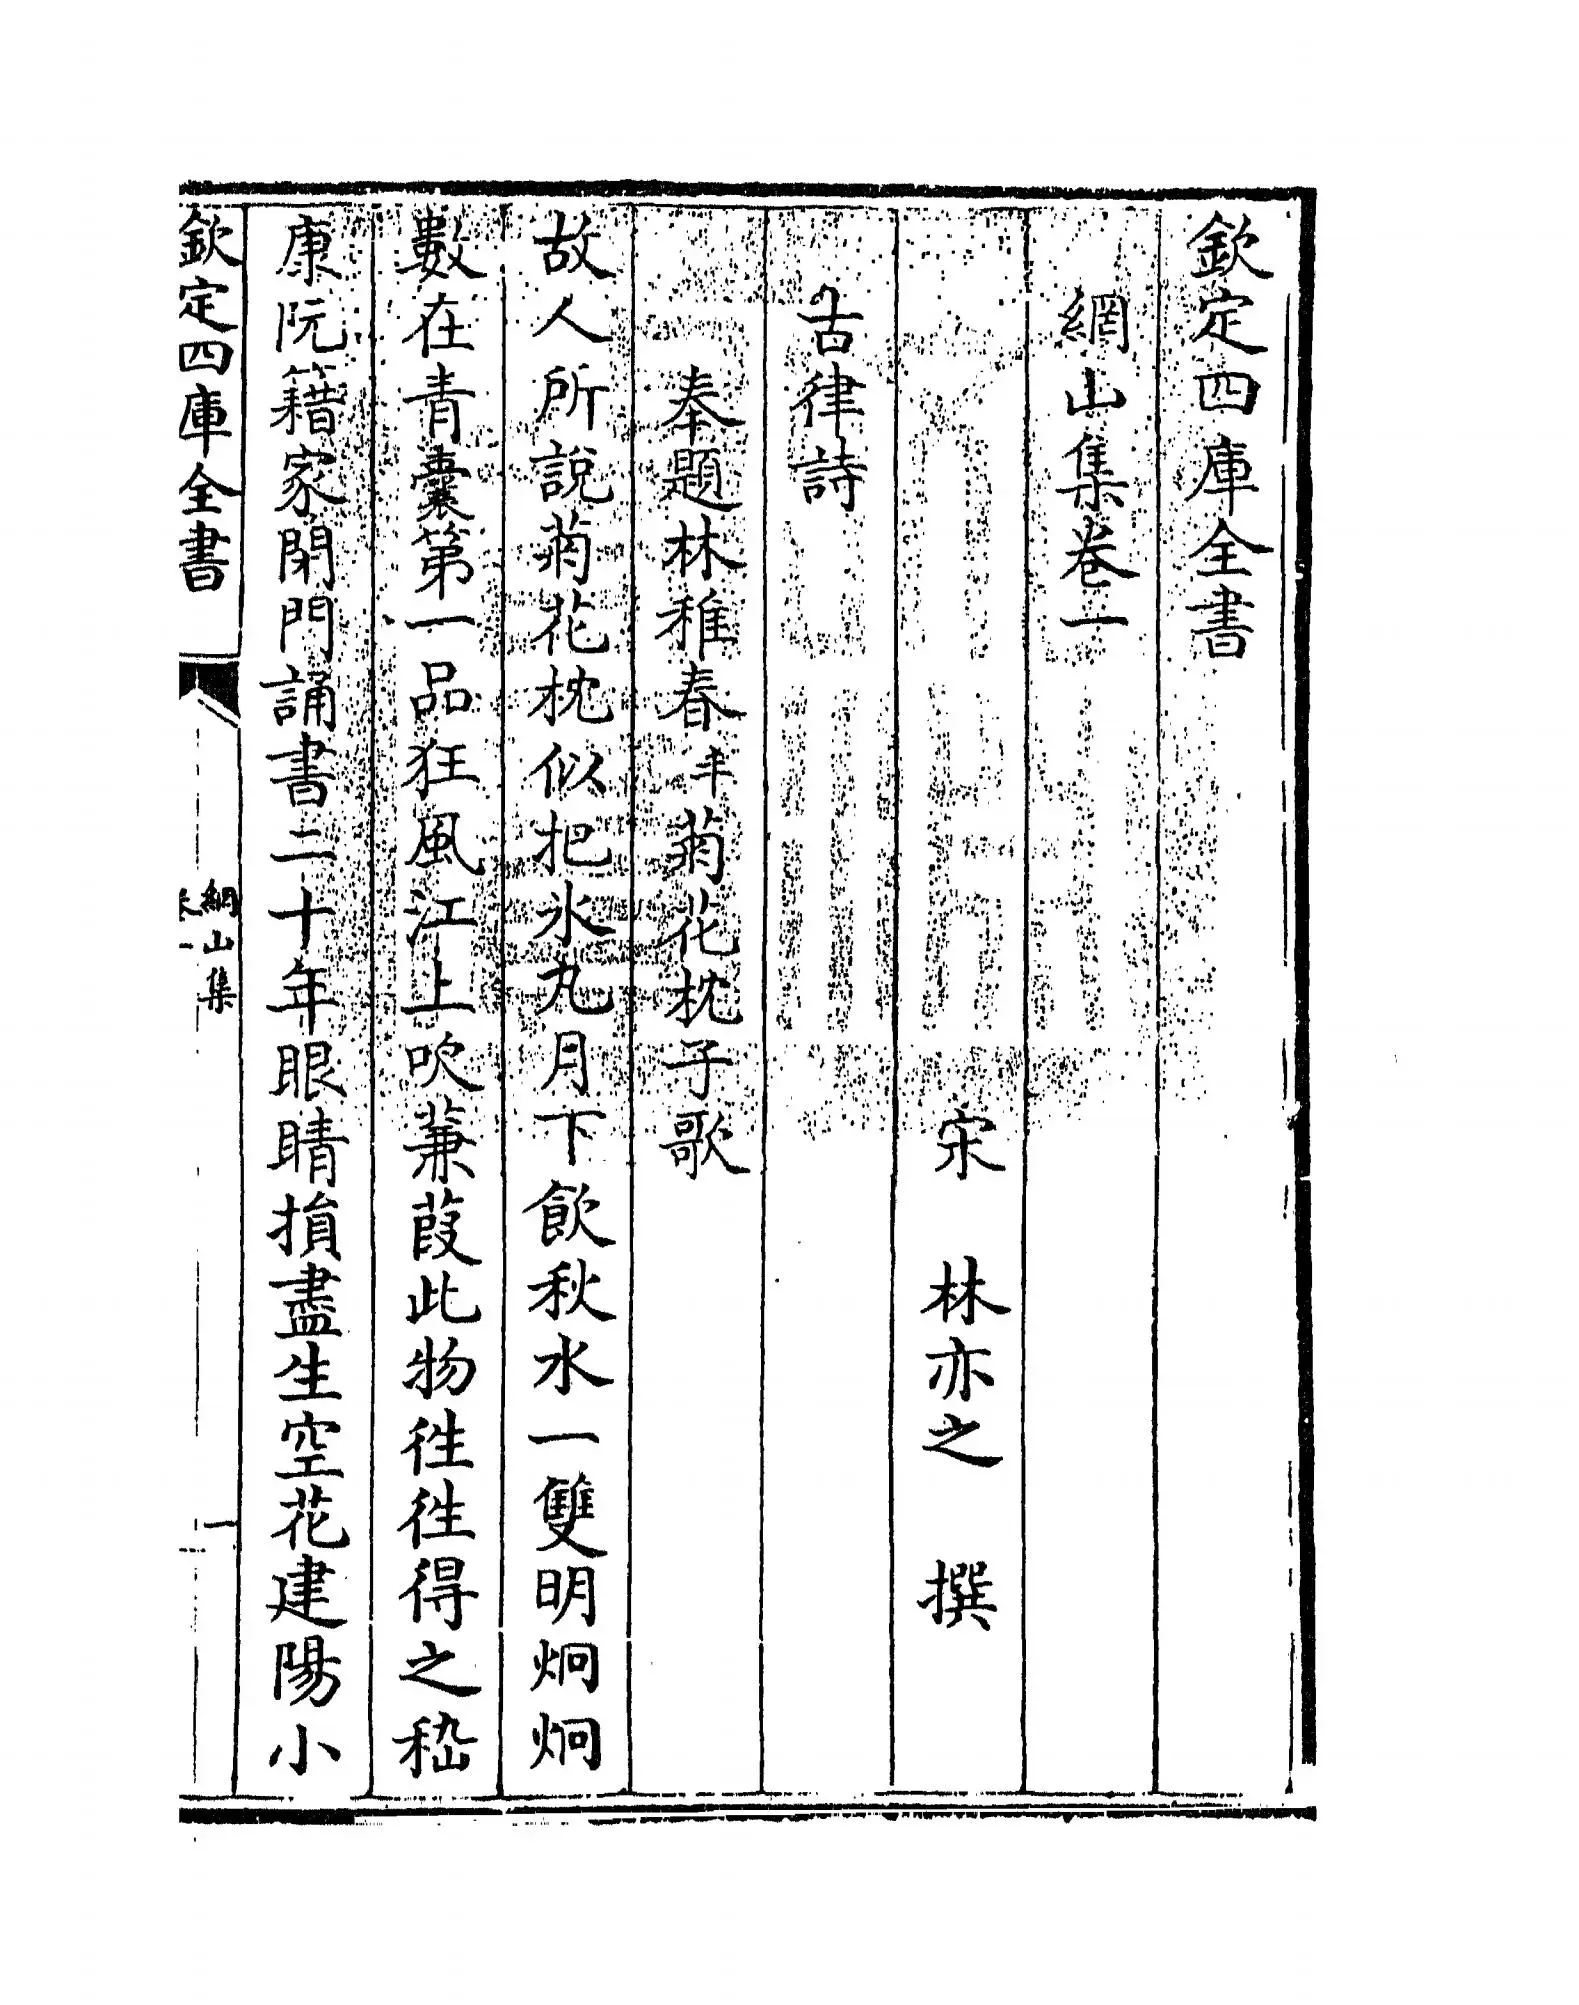 欽定四庫全書
網山集卷一
宋 林亦之 撰
古律詩
奉題林稚春丰菊花枕子歌
故人所說菊花枕似把氷丸月下飲秋水一雙明炯炯
數在青囊第一品狂風江上吹蒹葭此物徃徃得之嵇
康阮籍家閉門誦書二十年眼睛損盡生空花建陽小
欽定四庫全書
網山集
卷一
一